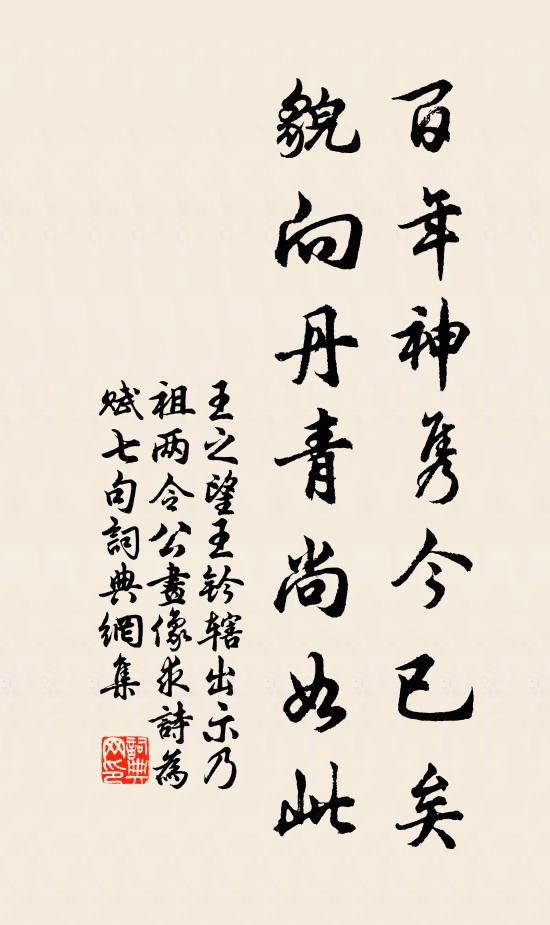 百年神隽今已矣
貌向丹青尚如此
王之望王钤辖出示乃
祖两令公畫像求詩為
賦七句詞典網集
詞典
网印